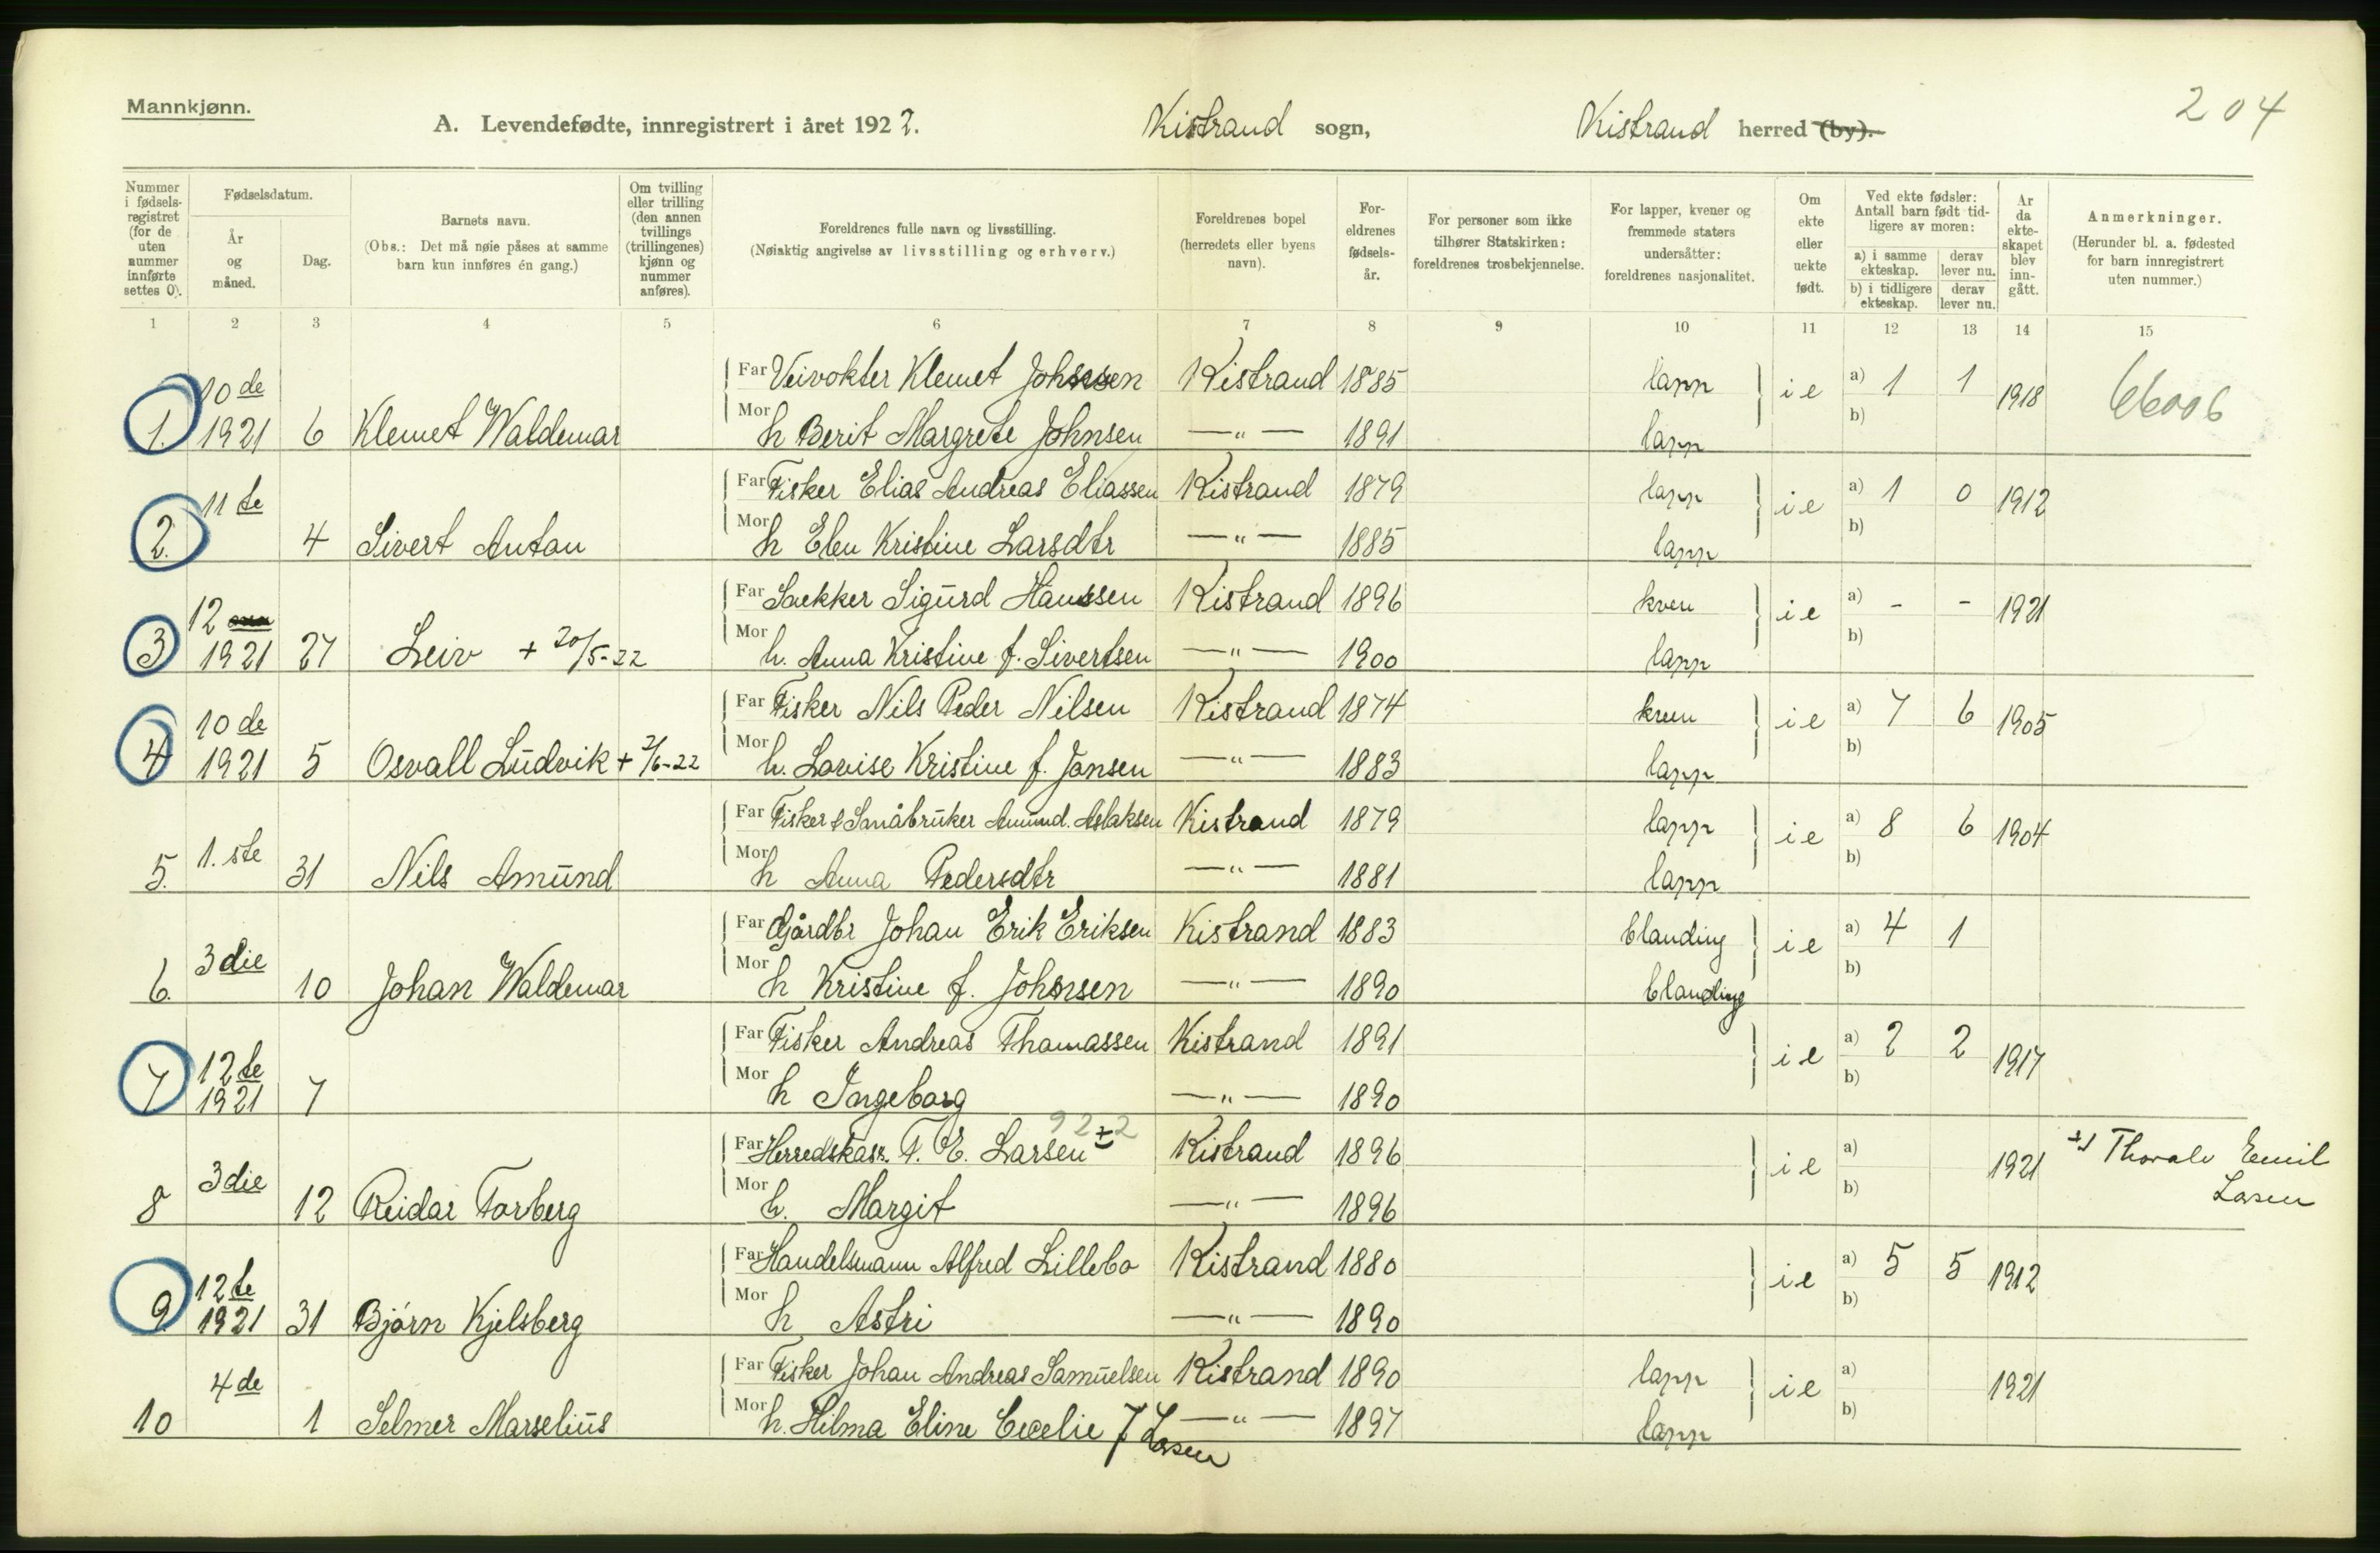 Mannkjønn.
204
A. Levendefødte, innregistrert i året 1922. Kistrand sogn, Kistrand herred (by).
Nummer i fødselsregistret (for de uten nummer innførte settes 0).
Fødselsdatum.
År og måned.
Dag.
Barnets navn.
(Obs.: Det må nøie påses at samme barn kun innføres én gang.)
Om tvilling eller trilling (den annen tvillings (trillingenes) kjønn og nummer anføres).
Foreldrenes fulle navn og livsstilling.
(Nøiaktig angivelse av livsstilling og erhverv.)
Foreldrenes bopel (herredets eller byens navn).
Foreldrenes fødselsår.
For personer som ikke tilhører Statskirken: foreldrenes trosbekjennelse.
For lapper, kvener og fremmede staters undersåtter: foreldrenes nasjonalitet.
Om ekte eller uekte født.
Ved ekte fødsler: Antall barn født tidligere av moren:
a) i samme ekteskap. derav lever nu.
b) i tidligere ekteskap. derav lever nu.
År da ekteskapet blev inngått.
Anmerkninger.
(Herunder bl. a. fødested for barn innregistrert uten nummer.)
1 2 3 4 5 6 7 8 9 10 11 12 13 14 15
10 de Far Veivokter Klemet Johnsen Kistrand 1885 lapp i e a) 1 1 1918 66006
1. 1921 6 Klemet Waldemar Mor h Berit Margrete Johnsen —"— 1891 lapp b)
11 te Far Fisker Elias Andreas Eliassen Kistrand 1879 lapp i e a) 1 0 1912
2. 4 Sivert Anton Mor h Elen Kristine Larsdtr —"— 1885 lapp b)
12 Far Snekker Sigurd Hanssen Kistrand 1896 kven i e a) - - 1921
3 1921 27 Leiv + 20/5-22 Mor h. Anna Kristine f. Sivertsen —"— 1900 lapp b)
10 de Far Fisker Nils Peder Nilsen Kistrand 1874 kven i e a) 7 6 1905
4 1921 5 Osvall Ludvik + 2/6-22 Mor h. Lovise Kristine f. Jansen —"— 1883 lapp b)
1. ste Far Fisker & Småbruker Amund. Aslaksen Kistrand 1879 lapp i e a) 8 6 1904
5. 31 Nils Amund Mor h Anna Pedersdtr —"— 1881 lapp b)
3 die Far Gårdbr Johan Erik Eriksen Kistrand 1883 blanding i e a) 4 1
6. 10 Johan Waldemar Mor h Kristine f. Johnsen —"— 1890 blanding b)
12 te Far Fisker Andreas Thomassen Kistrand 1891 i e a) 2 2 1917
7 1921 7 Mor h Ingeborg —"— 1890 b)
3 die Far Herredskass. T. E. Larsen Kistrand 1896 i e a) 1921 Thoralv Emil
8 12 Reidar Torberg Mor h. Margit —"— 1896 b) Larsen
12 te Far Handelsmann Alfred Lillebo Kistrand 1880 i e a) 5 5 1912
9 1921 31 Bjørn Kjelsberg Mor h Astri —"— 1890 b)
4 de Far Fisker Johan Andreas Samuelsen Kistrand 1890 lapp i e a) 1921
10 1 Selmer Marselius Mor h. Hilma Eline Cecelie f Larsen —"— 1897 lapp b)